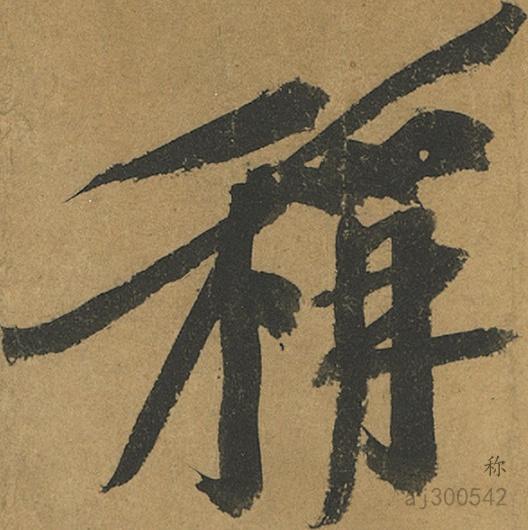 稱
称
aj300542